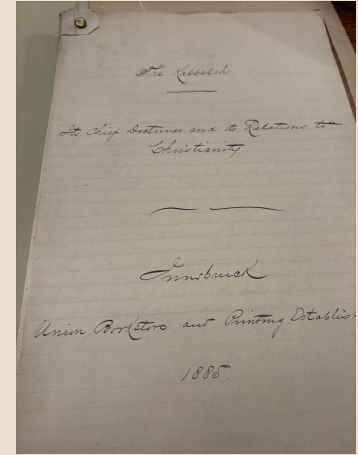 The Kabbalah
Its Chief Doctrines and its Relations to
Christianity
Innsbruck
Union Bookstore and Printing Establis
1885